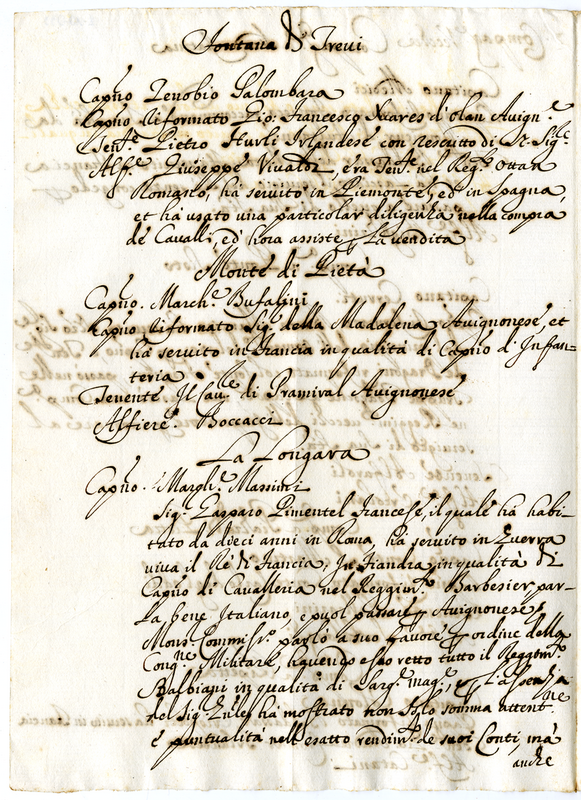 Fontana di Trevi
Capño Zenobio Palombara
Capño Riformato Gio: Francesco Xuares d'olan Avign.e
Tent.e Pietro Hurli Irlandese con rescritto di N. Sig.re
Alf.e Giuseppe Vivaldi, era Ten.te nel Reg.o Ottan
Romano, ha servito in Piemonte, ed in Spagna,
et ha usato una particolar diligenza nella compra
de Cavalli, ed hora assiste la vendita
Monte di Pietà
Capño. March.e Bufalini
Capño Riformato Sig.r della Madalena Avignonese, et
ha servito in Francia in qualità di Capño d'Infan-
teria
Tenente. Il Cav.re di Pramiral Avignonese
Alfiere. Boccacci
La Longara
Capño. March.e Massimi
Sig.r Gasparo Pimentel Francese, il quale ha habi-
tato da dieci anni in Roma, ha servito in Guerra
viva il Rè di Francia, In Fiandra in qualità di
Capño di Cavalleria nel Reggim.to Barbesier, par-
la bene Italiano, e puol passare p Avignonese
Mons.r Commiss.r parlò a suo favore p ordine della
Cong.ne Militare, havendo esso retto tutto il Reggim.to
Balbiani in qualità di Sarg.e mag.e, e l'assenza
del Sig.r ha mostrato non solo somma attent.ne
e puntualità nell'esatto rendim.to de suoi Conti, mà
anche